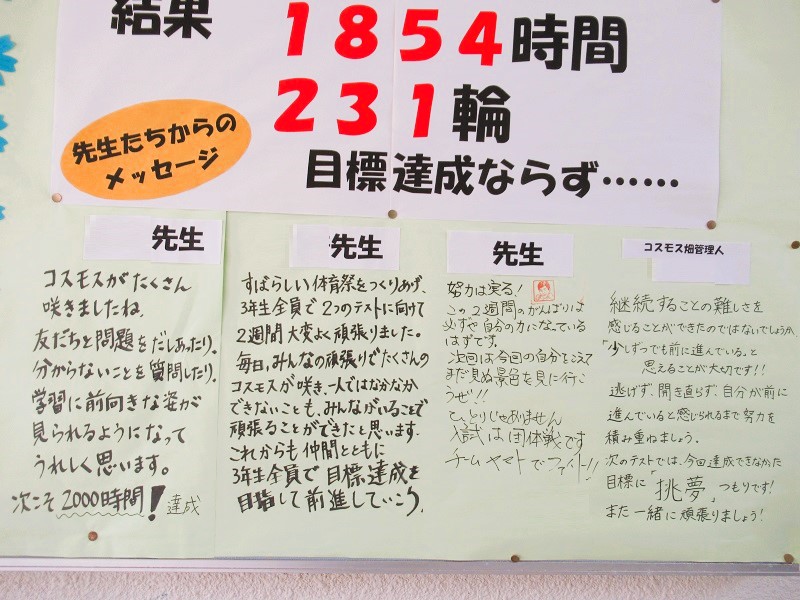 結果 1854時間
231輪
目標達成ならず……
先生たちからの
メッセージ
先生
コスモスがたくさん
咲きましたね。
友だちと問題をだしあったり、
分からないことを質問したり、
学習に前向きな姿が
見られるようになって
うれしく思います。
次こそ2000時間！達成
先生
すばらしい体育祭をつくりあげ、
3年生全員で2つのテストに向けて
2週間大変よく頑張りました。
毎日、みんなの頑張りでたくさんの
コスモスが咲き、一人ではなかなか
できないことも、みんながいることで
頑張ることができたと思います。
これからも仲間とともに
3年生全員で目標達成を
目指して前進していこう。
先生
努力は実る!
この2週間のがんばりは
必ずや自分の力になっている
はずです。
次回は今回の自分をこえて
まだ見ぬ景色を見に行こ
うぜ!!
ひとりじゃありません
入試は団体戦です
チームヤマトでファイト!!
コスモス畑管理人
継続することの難しさを
感じることができたのではないでしょうか。
「少しずつでも前に進んでいる」と
思えることが大切です!!
逃げず、開き直らず、自分が前に
進んでいると感じられるまで努力を
積み重ねましょう。
次のテストでは、今回達成できなかた
目標に「挑夢」つもりです!
また一緒に頑張りましょう!